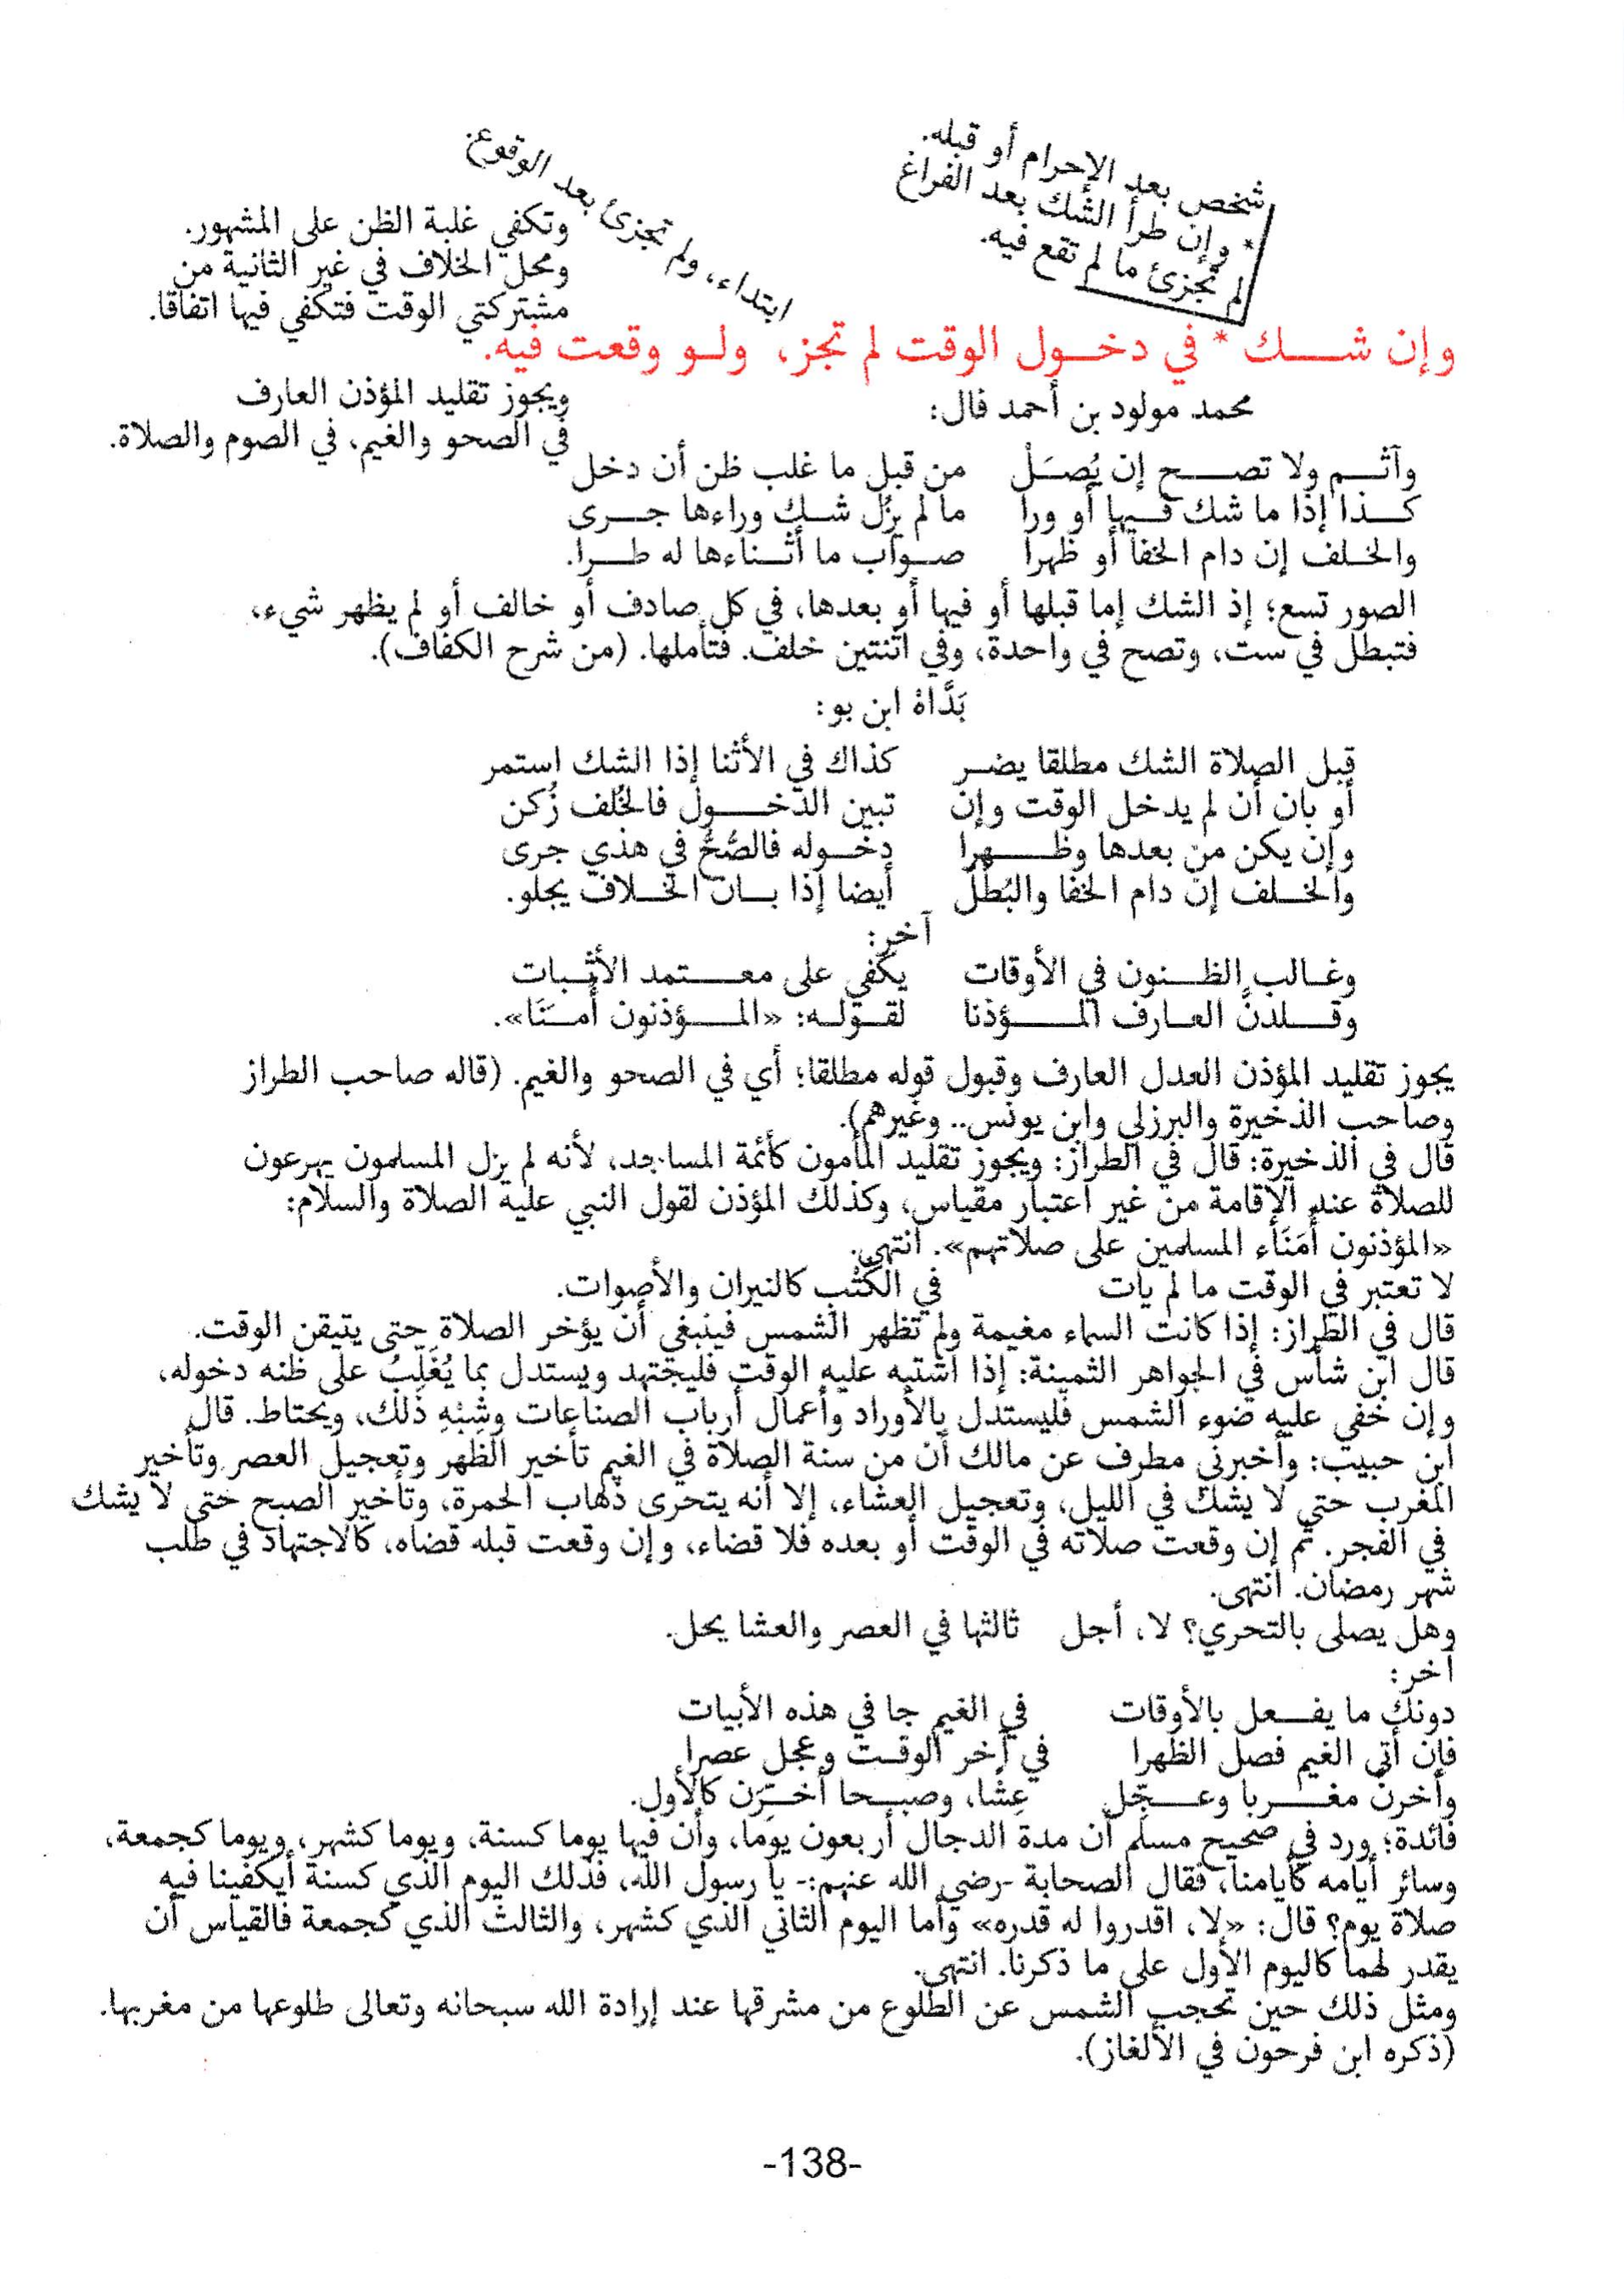 شخص بعد الإحرام أو قبله.
* وإن طرأ الشك بعد الفراغ
لم تجزئ ما لم تقع فيه.
ابتداء، ولم تجزئ بعد الوقوع.
وتكفي غلبة الظن على المشهور.
ومحل الخلاف في غير الثانية من
مشتركتي الوقت فتكفي فيها اتفاقا.
وإن شك * في دخول الوقت لم تجز، ولو وقعت فيه.
ويجوز تقليد المؤذن العارف
في الصحو والغيم، في الصوم والصلاة.
محمد مولود بن أحمد فال:
وآثم ولا تصح إن يُصَلْ من قبل ما غلب ظن أن دخل
كذا إذا ما شك فيها أو ورا ما لم يزُل شك وراءها جرى
والخلف إن دام الخفا أو ظهرا صواب ما أثناءها له طرا.
الصور تسع؛ إذ الشك إما قبلها أو فيها أو بعدها، في كل صادف أو خالف أو لم يظهر شيء،
فتبطل في ست، وتصح في واحدة، وفي اثنتين خلف. فتأملها. (من شرح الكفاف).
بَدَّاهْ ابن بو:
قبل الصلاة الشك مطلقا يضر كذاك في الأثنا إذا الشك استمر
أو بان أن لم يدخل الوقت وإن تبين الدخول فالخُلف زُكن
وإن يكن من بعدها وظهرا دخوله فالصُّحُّ في هذي جرى
والخلف إن دام الخفا والبُطْلُ أيضا إذا بان الخلاف يجلو.
آخر:
وغالب الظنون في الأوقات يكفي على معتمد الأثبات
وقلدنَّ العارف المؤذنا لقوله: «المؤذنون أُمَنَا».
يجوز تقليد المؤذن العدل العارف وقبول قوله مطلقا؛ أي في الصحو والغيم. (قاله صاحب الطراز
وصاحب الذخيرة والبرزلي وابن يونس.. وغيرهم).
قال في الذخيرة: قال في الطراز: ويجوز تقليد المأمون كأئمة المساجد، لأنه لم يزل المسلمون يهرعون
للصلاة عند الإقامة من غير اعتبار مقياس، وكذلك المؤذن لقول النبي عليه الصلاة والسلام:
«المؤذنون أُمَنَاء المسلمين على صلاتهم». انتهى.
لا تعتبر في الوقت ما لم يات في الكُتْبِ كالنيران والأصوات.
قال في الطراز: إذا كانت السماء مغيمة ولم تظهر الشمس فينبغي أن يؤخر الصلاة حتى يتيقن الوقت.
قال ابن شأس في الجواهر الثمينة: إذا اشتبه عليه الوقت فليجتهد ويستدل بما يُغَلِّبُ على ظنه دخوله،
وإن خفي عليه ضوء الشمس فليستدل بالأوراد وأعمال أرباب الصناعات وشِبْهِ ذلك، ويحتاط. قال
ابن حبيب: وأخبرني مطرف عن مالك أن من سنة الصلاة في الغيم تأخير الظهر وتعجيل العصر وتأخير
المغرب حتى لا يشك في الليل، وتعجيل العشاء، إلا أنه يتحرى ذهاب الحمرة، وتأخير الصبح حتى لا يشك
في الفجر. ثم إن وقعت صلاته في الوقت أو بعده فلا قضاء، وإن وقعت قبله قضاه، كالاجتهاد في طلب
شهر رمضان. انتهى.
وهل يصلى بالتحري؟ لا، أجل ثالثها في العصر والعشا يحل.
آخر:
دونك ما يفعل بالأوقات في الغيم جا في هذه الأبيات
فإن أتى الغيم فصل الظهرا في آخر الوقت وعجل عصرا
وأخرنْ مغربا وعجِّل عِشًا، وصبحا أخِّرَن كالأول.
فائدة؛ ورد في صحيح مسلم أن مدة الدجال أربعون يوما، وأن فيها يوما كسنة، ويوما كشهر، ويوما كجمعة،
وسائر أيامه كأيامنا، فقال الصحابة -رضي الله عنهم:- يا رسول الله، فذلك اليوم الذي كسنة أيكفينا فيه
صلاة يوم؟ قال: «لا، اقدروا له قدره» وأما اليوم الثاني الذي كشهر، والثالث الذي كجمعة فالقياس أن
يقدر لهما كاليوم الأول على ما ذكرنا. انتهى.
ومثل ذلك حين تحجب الشمس عن الطلوع من مشرقها عند إرادة الله سبحانه وتعالى طلوعها من مغربها.
(ذكره ابن فرحون في الألغاز).
-138-